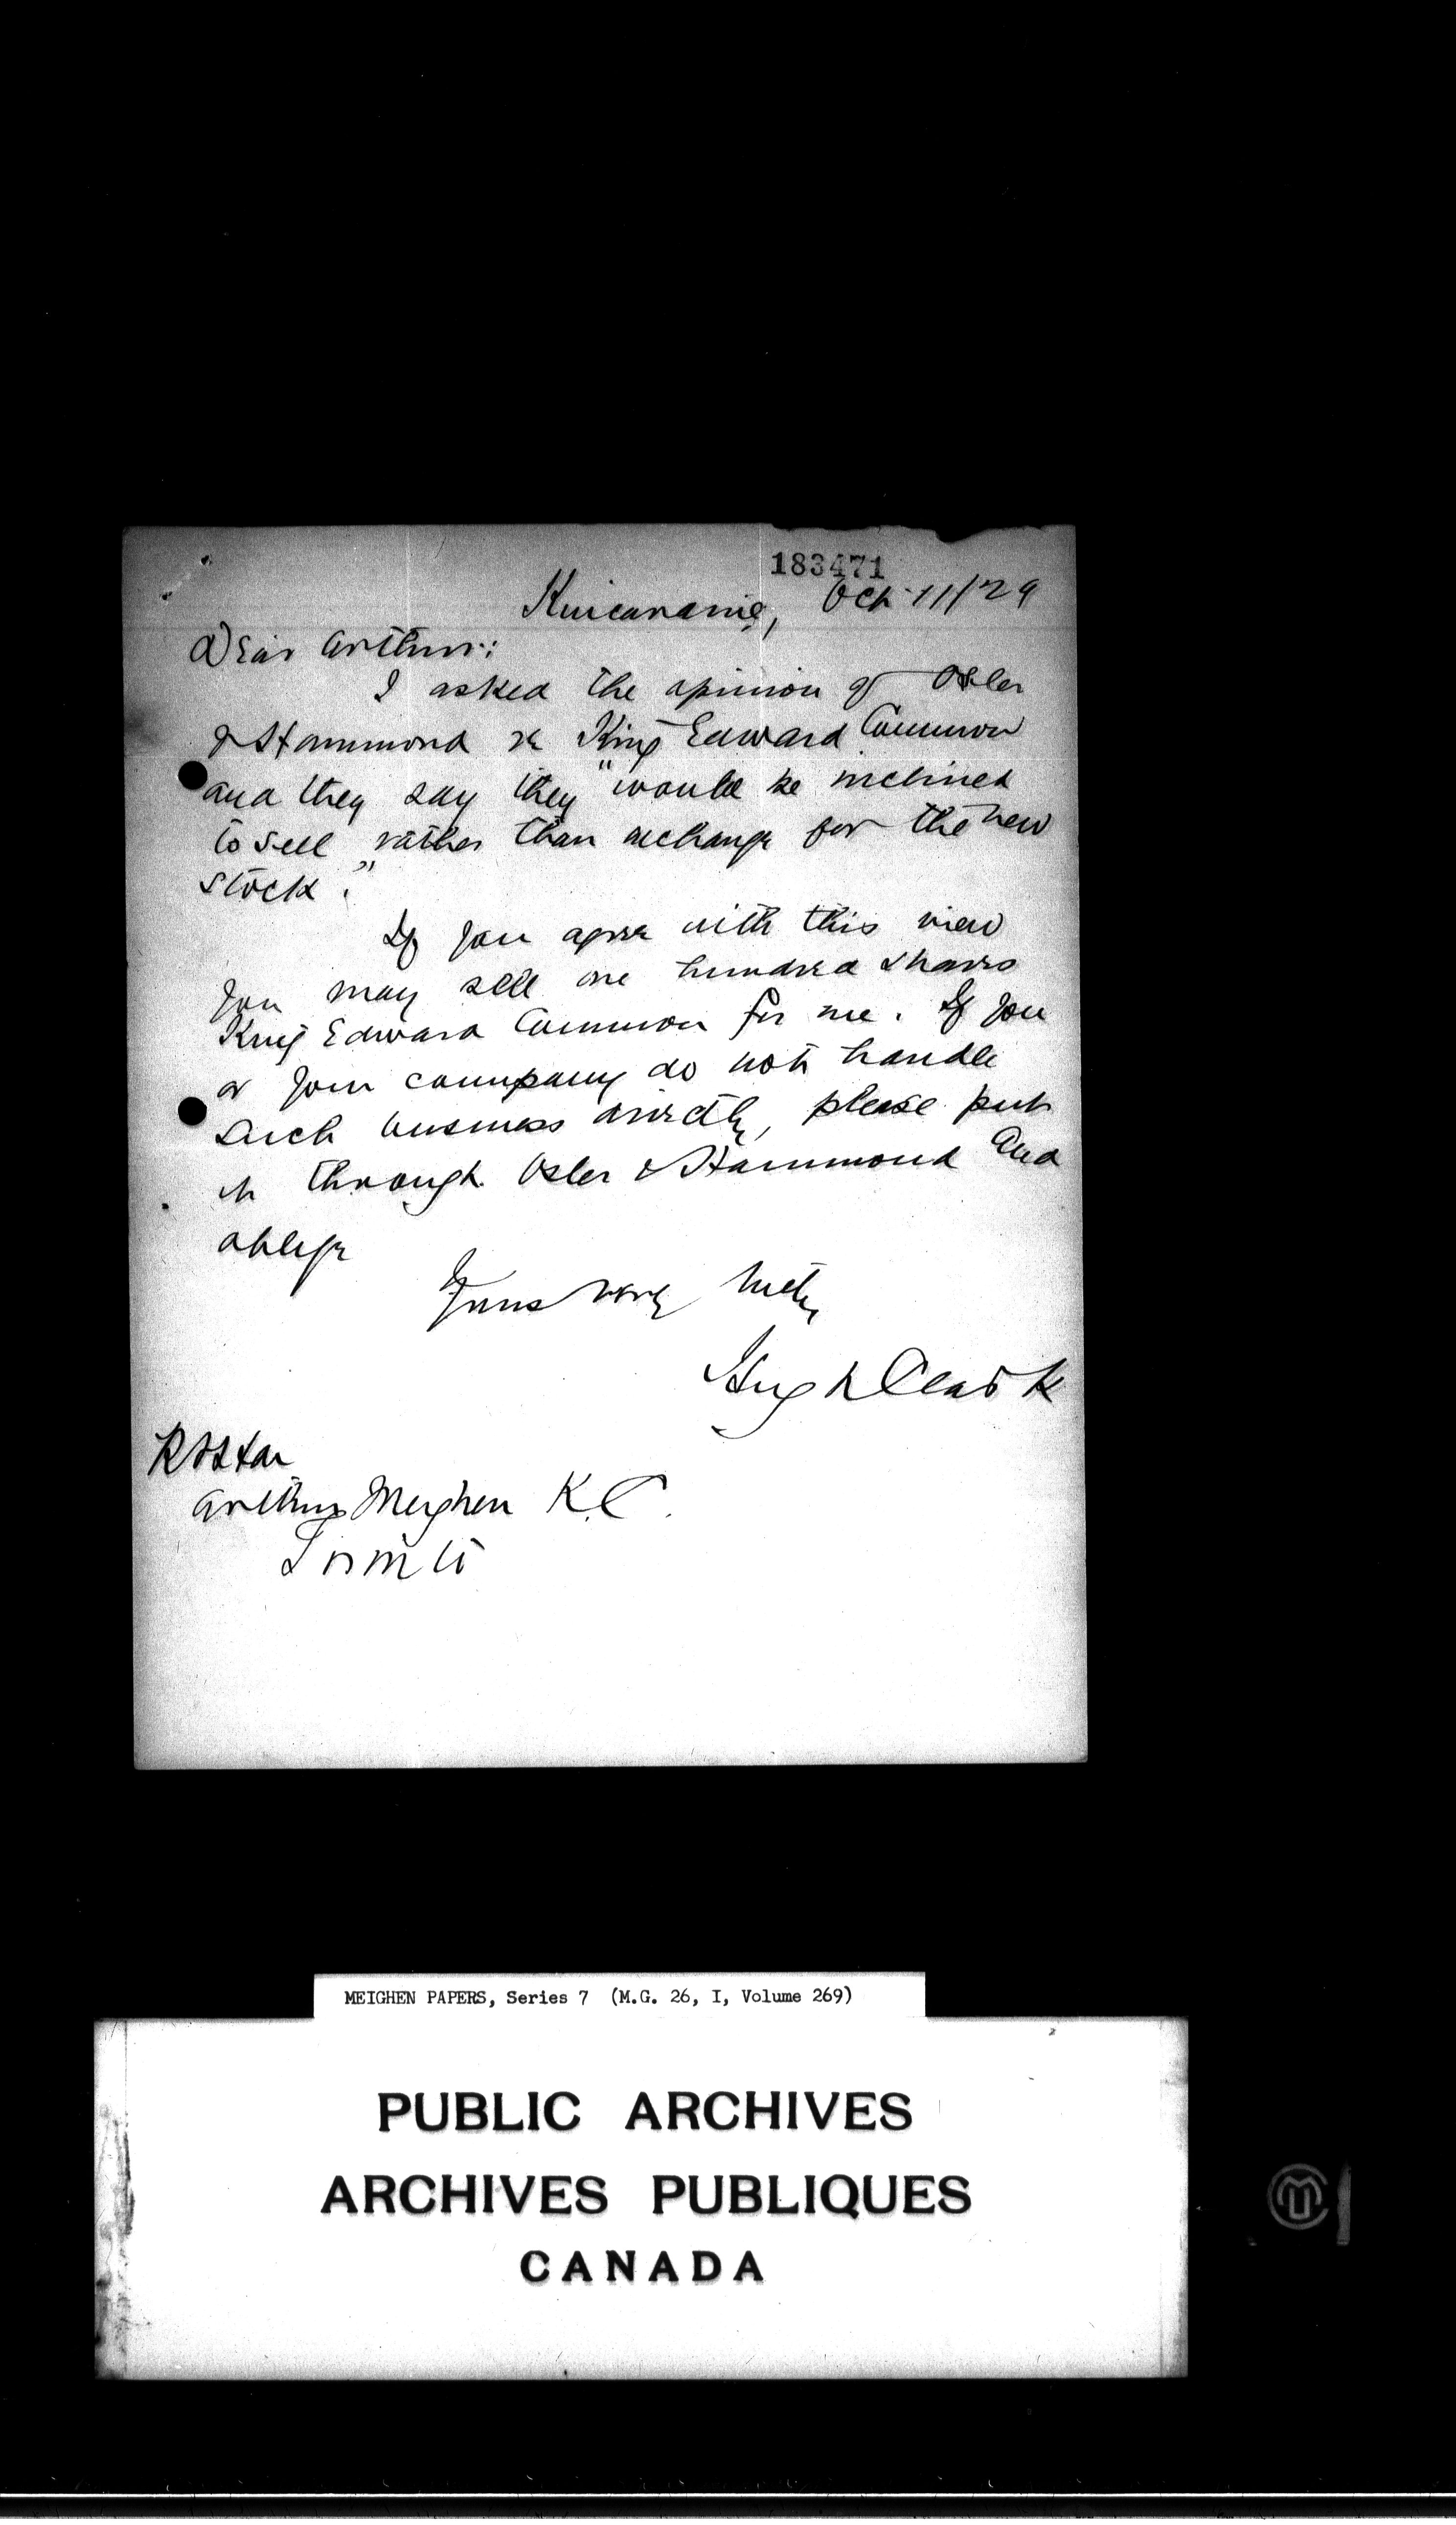 183471
Kincardine, Oct 11/29
Dear Arthur:
I asked the opinion of Osler
& Hammond re King Edward Common
and they say they "would be inclined
to sell rather than exchange for the new
stock."
If you agree with this view
you may sell one hundred shares
King Edward Common for me. If you
or your company do not handle
such business directly, please put
it through Osler & Hammond and
oblige
Yours very truly
Hugh Clark
Rt Hon
Arthur Meighen K.C.
Toronto
MEIGHEN PAPERS, Series 7 (M.G. 26, I, Volume 269)
PUBLIC ARCHIVES
ARCHIVES PUBLIQUES
CANADA